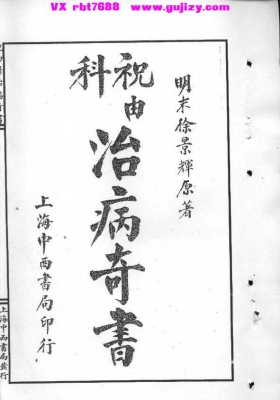 VX rbt7688  www.gujizy.com
明末徐景輝原著
祝由科
治病奇書
上海中西書局印行
上海中西書局發行